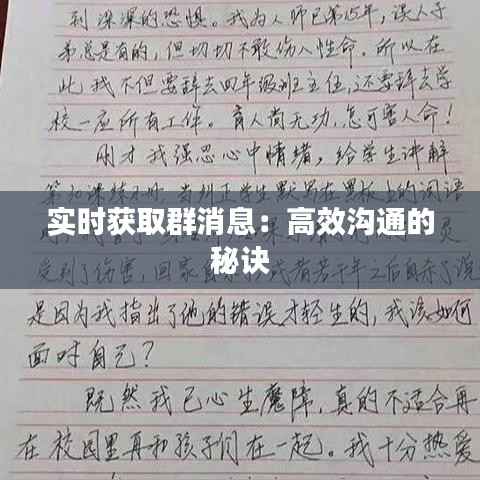 到深深的恐惧。我为人师已第15年，误人子
弟总是有的，但切切不敢伤人性命。所以在
此我不但要辞去四年级班主任，还要辞去学
校一应所有工作。育人尚无功，怎可害人命！
刚才我强忍心中情绪，给学生讲解
实时获取群消息：高效沟通的
秘诀
受到了伤害，回家自杀或者若干年之后自杀了说
是因为我指出了他的错误才轻生的，我该如何
面对自己？
既然我已心生魔障，真的不适合再
在校园里再和孩子们在一起。我十分热爱